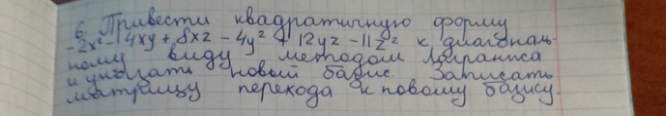 6. Привести квадратичную форму
-2x² - 4xy + 8xz - 4y² + 12yz - 11z² к диагональ-
ному виду методом Лагранжа
и указать новый базис. Записать
матрицу перехода к новому базису.